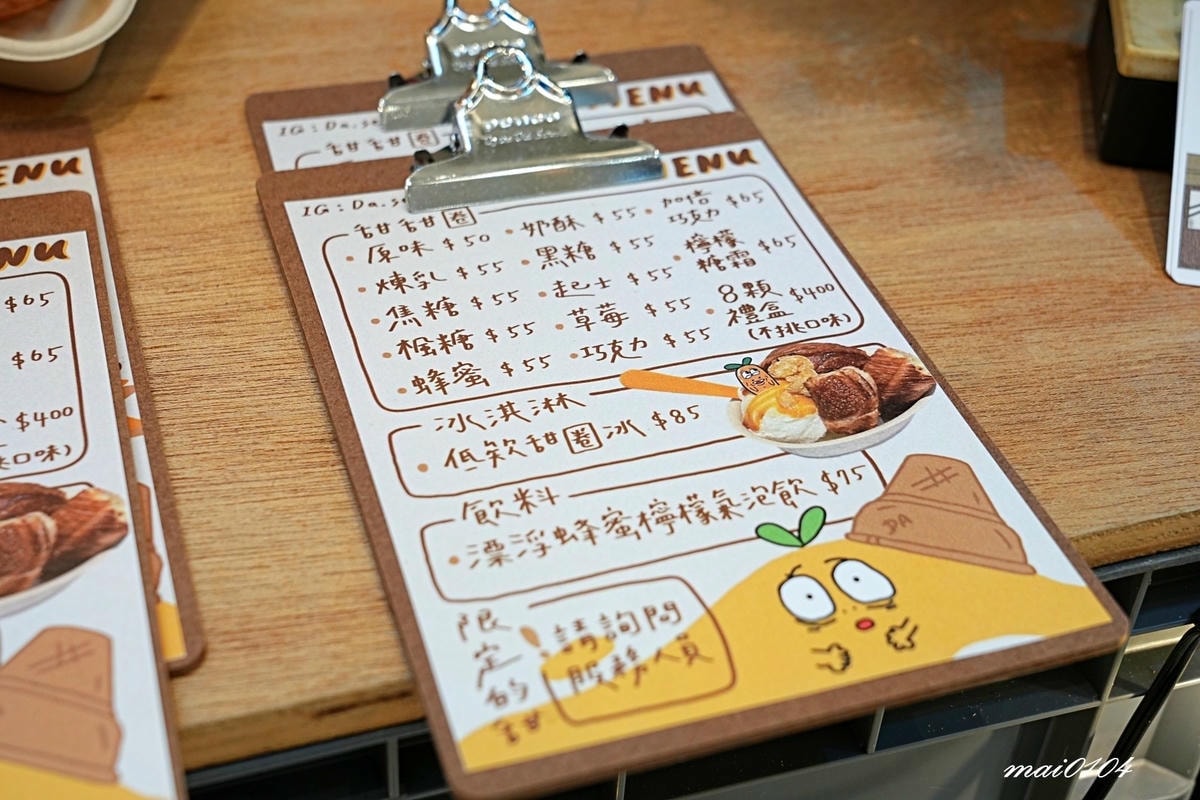 MENU
IG:Da.s
甜甜圈
MENU
IG:Da.s
甜甜圈
原味 $50
煉乳 $55
焦糖 $55
楓糖 $55
蜂蜜 $55
奶酥 $55
黑糖 $55
起士 $55
草莓 $55
巧克力 $55
加倍
巧克力 $65
檸檬
糖霜 $65
8顆
禮盒 $400
(不挑口味)
冰淇淋
低欸甜圈冰 $85
飲料
漂浮蜂蜜檸檬氣泡飲 $75
限定的甜
請詢問
服務人員
DA
ENU
NU
$65
$65
$400
口味)
mai0104